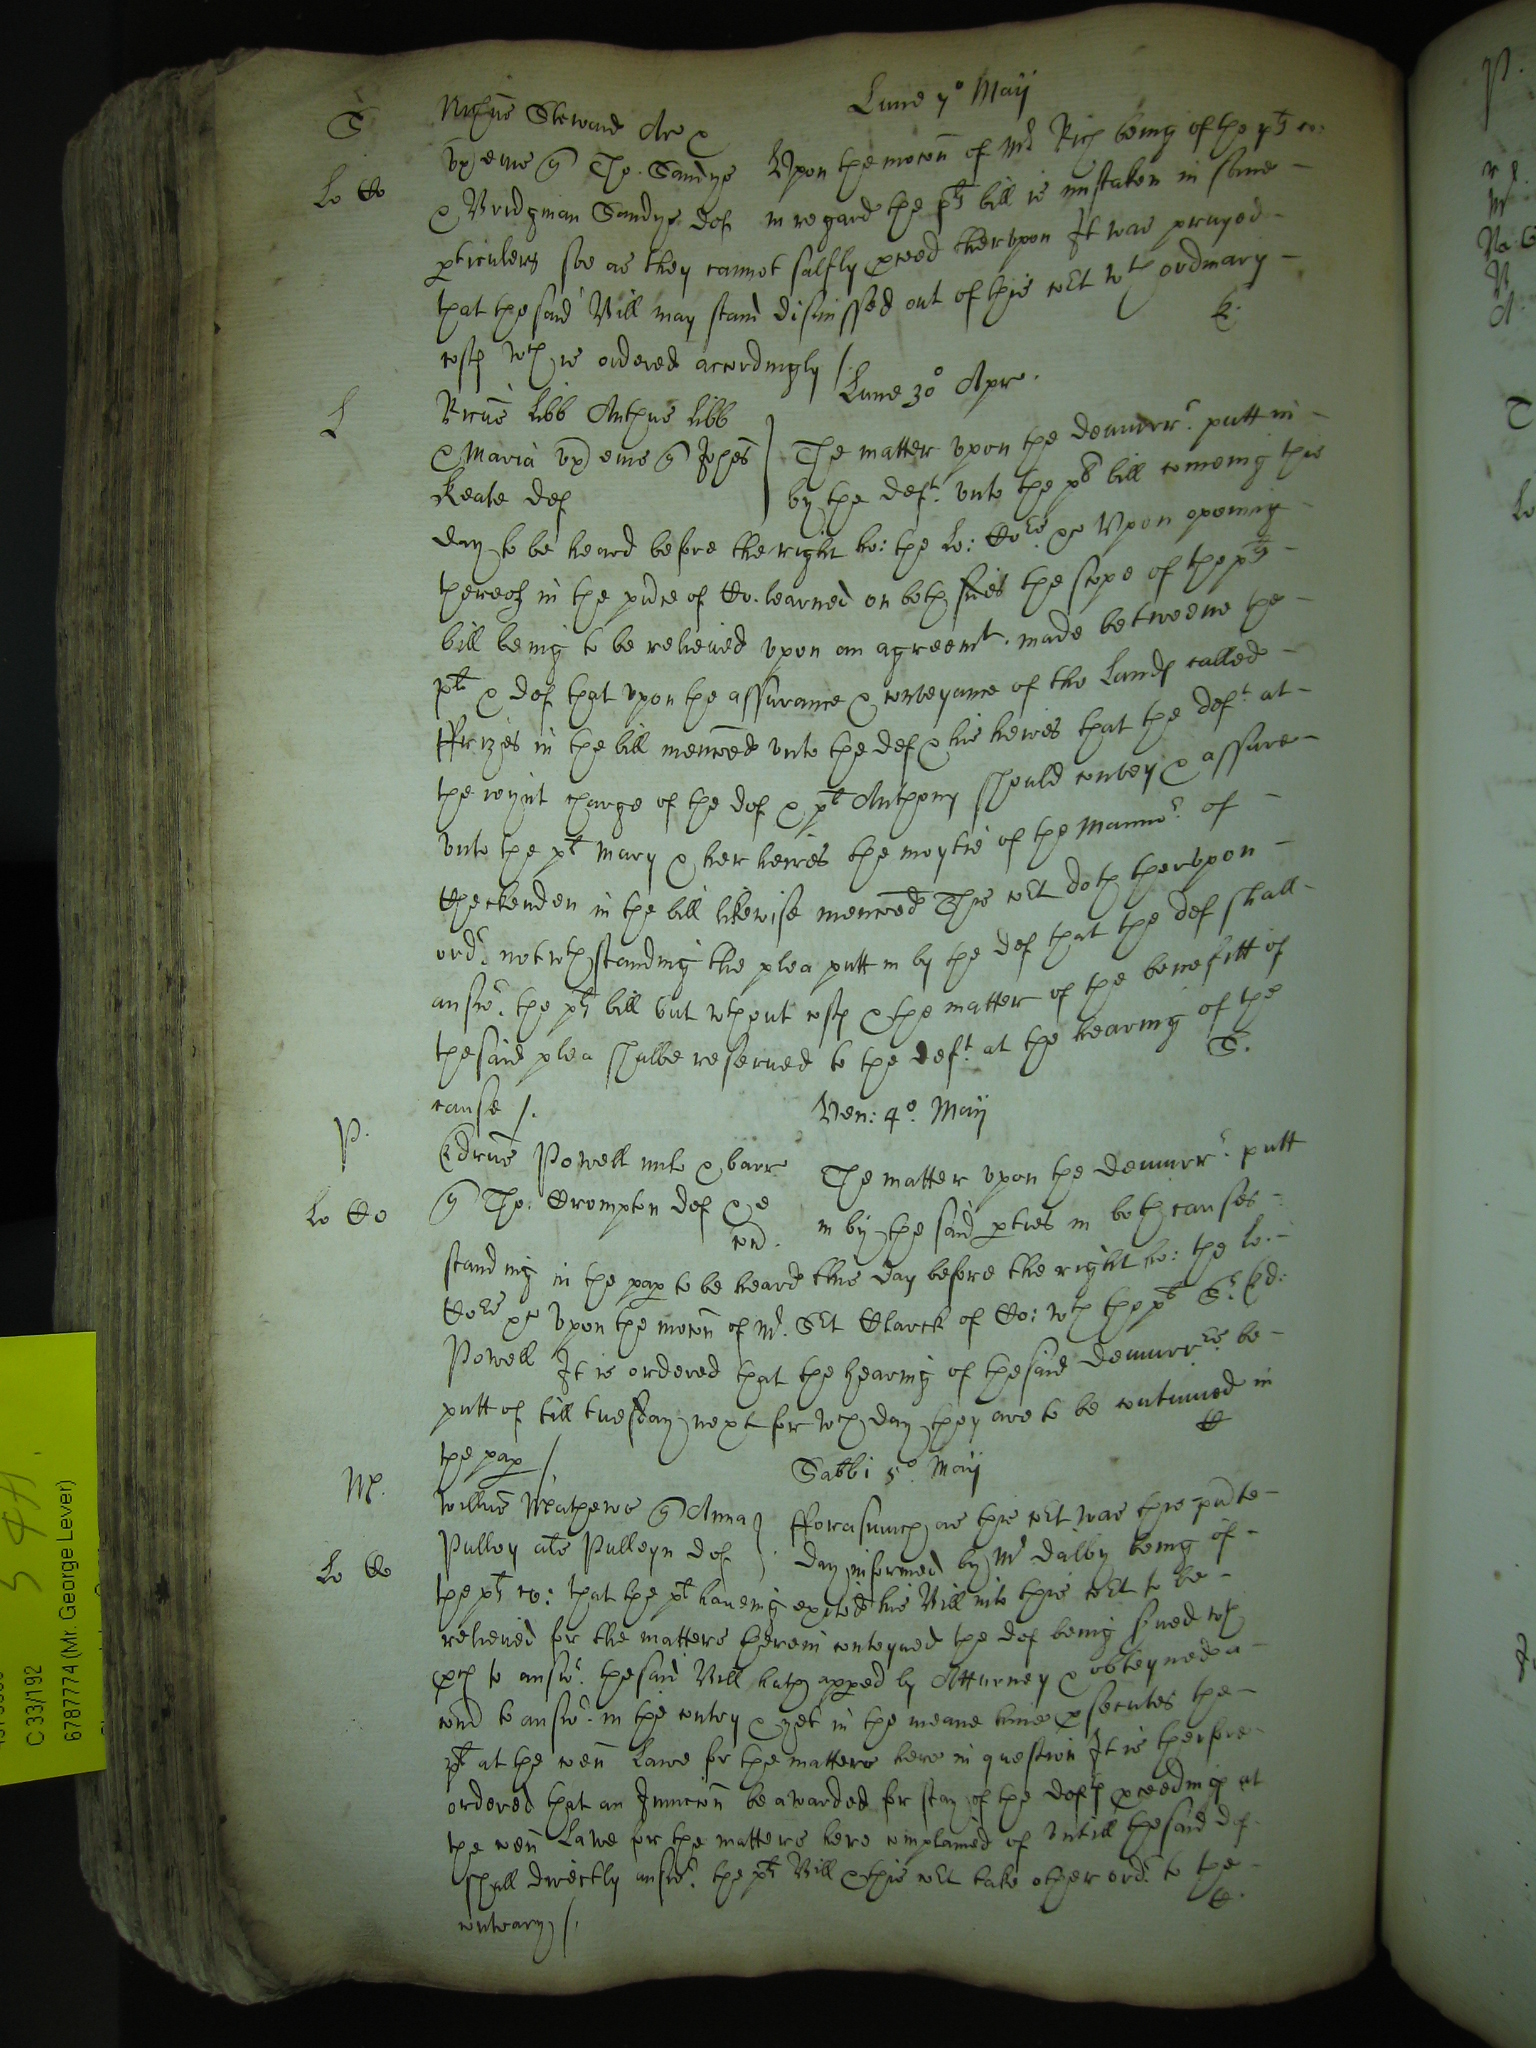 Lune 7° Maij
S Nichus Steward Ar &
Lo Co ux eius q Tho. Sandys Upon the mocon of Mr Rich being of the pts co:
& Bridgman Sandys def in regard the pts bill is mistaken in some
pticulers soe as they cannot saffly pceed therupon It was prayed
that the said Bill may stand dismissed out of this Cot wth ordinary
costs wch is ordered accordingly / R.
Lune 30° Apr.
L Ricus Libb Anthus Libb
& Maria ux eius q Johes The matter upon the demurr. putt in
Keate def by the deft. unto the pts bill comeing this
day to be heard before the right ho: the Lo: Cors. &c Upon opening
thereof in the pnce of Co. learned on both sides the scope of the pts
bill being to be relieued upon an agreemt. made betweene the
plt & def that upon the assurance & conveyance of the Lands called
ffrizes in the bill menconed unto the def & his heires that the deft at
the ioynt charge of the def & plt Anthony should convey & assure
unto the plt Mary & her heires the moytie of the Mannor. of
Checkenden in the bill likewise menconed This Cot doth therupon
ordr. notwthstanding the plea putt in by the def that the def shall
answ. the pts bill but wthout costs & the matter of the benefitt of
the said plea shalbe reserued to the deft. at the hearing of the
cause /. S.
Ven: 4°. Maij
P. Edrus Powell mils & barr The matter upon the demurr. putt
Lo Co q Tho: Crompton def & e in by the said pties in both causes
con. standing in the pap to be heard this day before the right ho: the lo:
Cors &c Upon the mocon of Mr. Sct Clarck of Co: wth the plt Sr. Ed:
Powell It is ordered that the hearing of the said demurrrs. be
putt of till tuesday next for wch day they are to be continued in
the pap / C
Sabbi 5°. Maij
M. Willus Mathewes q Anna fforasmuch as this Cot was this pnte
Lo Co Pulley als Pulleyn def day informed by Mr Dalby being of
the pts co: that the plt haueing exited his Bill into this Cot to be
relieued for the matters herein conteyned the def being serued wth
pces to answ. the said Bill hath apped by Atturney & obteyned a
comd to answ. in the contry & yet in the meane time psecutes the
plt at the comon Lawe for the matters here in question It is therfore
ordered that an Iniuncon be awarded for stay of the defts pceedings at
the comon Lawe for the matters here complained of untill the said def
shall directly answ. the pts Bill & this Cot take other ordr. to the
contrary /. C.
C 33/192
6787774 (Mr. George Lever)